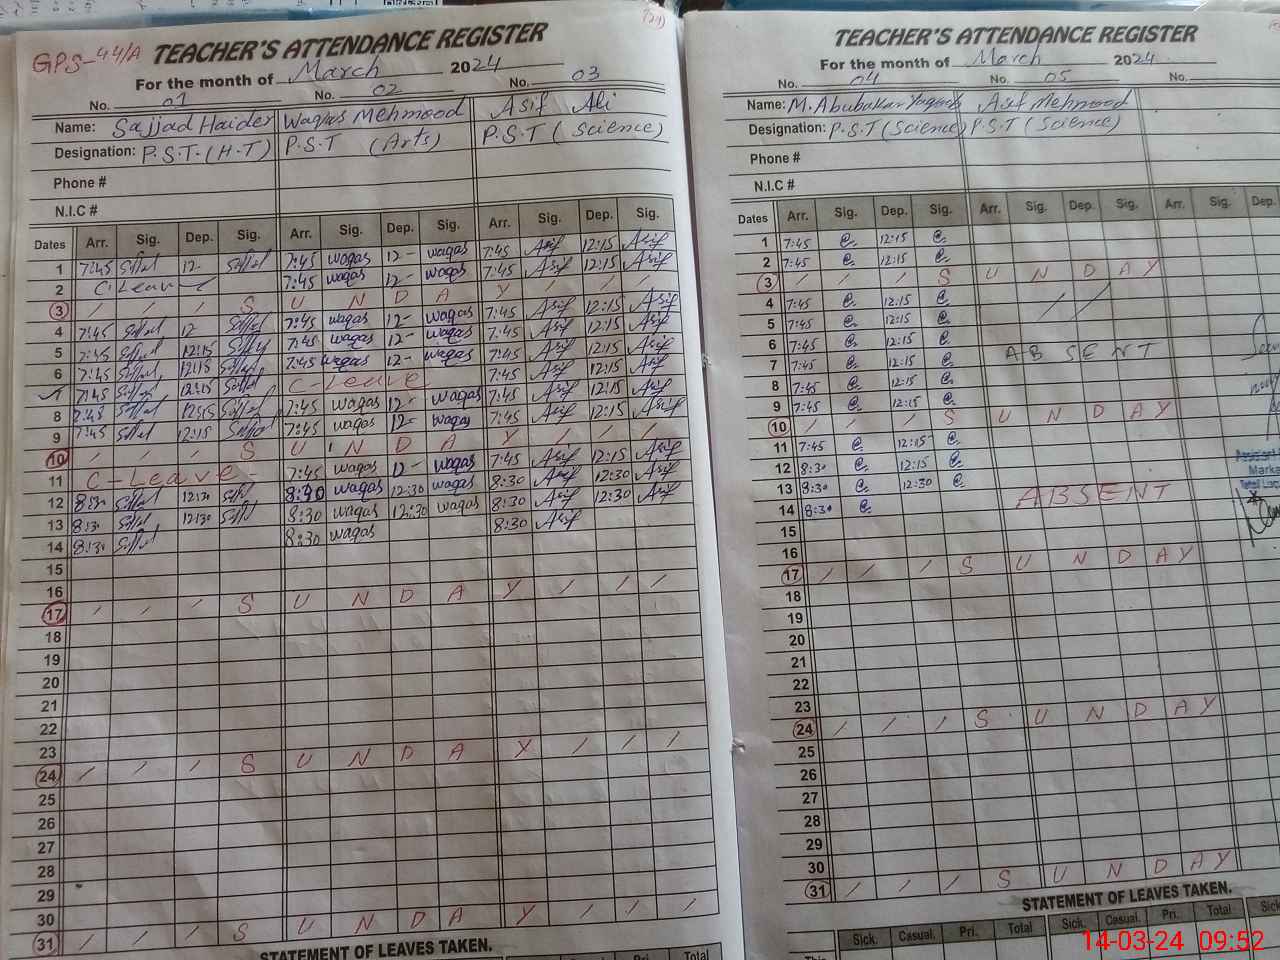 GPS-44/A
TEACHER'S ATTENDANCE REGISTER
For the month of March 2024
No. 01 No. 02 No. 03
Name: Sajjad Haider Waqas Mehmood Asif Ali
Designation: P.S.T.(H.T) P.S.T (Arts) P.S.T (Science)
Phone #
N.I.C #
Dates Arr. Sig. Dep. Sig. Arr. Sig. Dep. Sig. Arr. Sig. Dep. Sig.
1 7:45 12- 7:45 waqas 12- waqas 7:45 Asif 12:15 Asif
2 C-Leave 7:45 waqas 12- waqas 7:45 Asif 12:15 Asif
3 / / / S U N D A Y / / /
4 7:45 12 7:45 waqas 12- waqas 7:45 Asif 12:15 Asif
5 7:45 12:15 7:45 waqas 12- waqas 7:45 Asif 12:15 Asif
6 7:45 12:15 7:45 waqas 12- waqas 7:45 Asif 12:15 Asif
7 7:45 12:15 C-Leave 7:45 Asif 12:15 Asif
8 7:45 12:15 7:45 waqas 12- waqas 7:45 Asif 12:15 Asif
9 7:45 12:15 7:45 waqas 12- waqas 7:45 Asif 12:15 Asif
10 / / / S U N D A Y / / /
11 C-Leave- 7:45 waqas 12- waqas 7:45 Asif 12:15 Asif
12 8:30 12:30 8:30 waqas 12:30 waqas 8:30 Asif 12:30 Asif
13 8:30 12:30 8:30 waqas 12:30 waqas 8:30 Asif 12:30 Asif
14 8:30 8:30 waqas 8:30 Asif
15
16
17 / / / S U N D A Y / / /
18
19
20
21
22
23
24 / / / S U N D A Y / / /
25
26
27
28
29
30
31 / / / S U N D A Y / / /
STATEMENT OF LEAVES TAKEN.
Total Sick. Casual. Pri. Total
TEACHER'S ATTENDANCE REGISTER
For the month of March 2024
No. 04 No. 05 No.
Name: M. Abubakar Yaqoob Asif Mehmood
Designation: P.S.T (Science) P.S.T (Science)
Phone #
N.I.C #
Dates Arr. Sig. Dep. Sig. Arr. Sig. Dep. Sig. Arr. Sig. Dep.
1 7:45 12:15
2 7:45 12:15
3 / / / S U N D A Y
4 7:45 12:15
5 7:45 12:15
6 7:45 12:15
7 7:45 12:15 ABSENT
8 7:45 12:15
9 7:45 12:15
10 / / / S U N D A Y
11 7:45 12:15
12 8:30 12:15
13 8:30 12:30
14 8:30 ABSENT
15
16
17 / / / S U N D A Y
18
19
20
21
22
23
24 / / / S U N D A Y
25
26
27
28
29
30
31 / / / S U N D A Y
STATEMENT OF LEAVES TAKEN.
Sick. Casual. Pri. Total Sick. Casual. Pri. Total Sick.
This
14-03-24 09:52